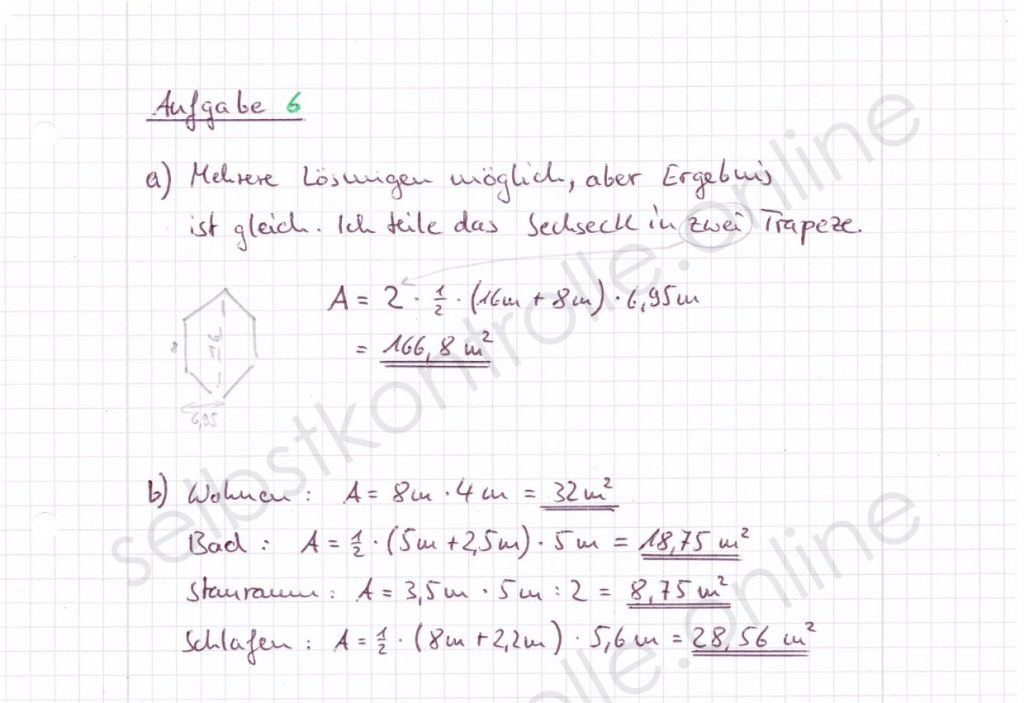 Aufgabe 6
a) Mehrere Lösungen möglich, aber Ergebnis
ist gleich. Ich teile das Sechseck in zwei Trapeze.
A = 2 · 1/2 · (16m + 8m) · 6,95m
= 166,8 m²
8
16
6,95
b) Wohnen : A = 8m · 4m = 32 m²
Bad : A = 1/2 · (5m + 2,5m) · 5m = 18,75 m²
Stauraum : A = 3,5m · 5m : 2 = 8,75 m²
Schlafen : A = 1/2 · (8m + 2,2m) · 5,6m = 28,56 m²
selbstkontrolle.online